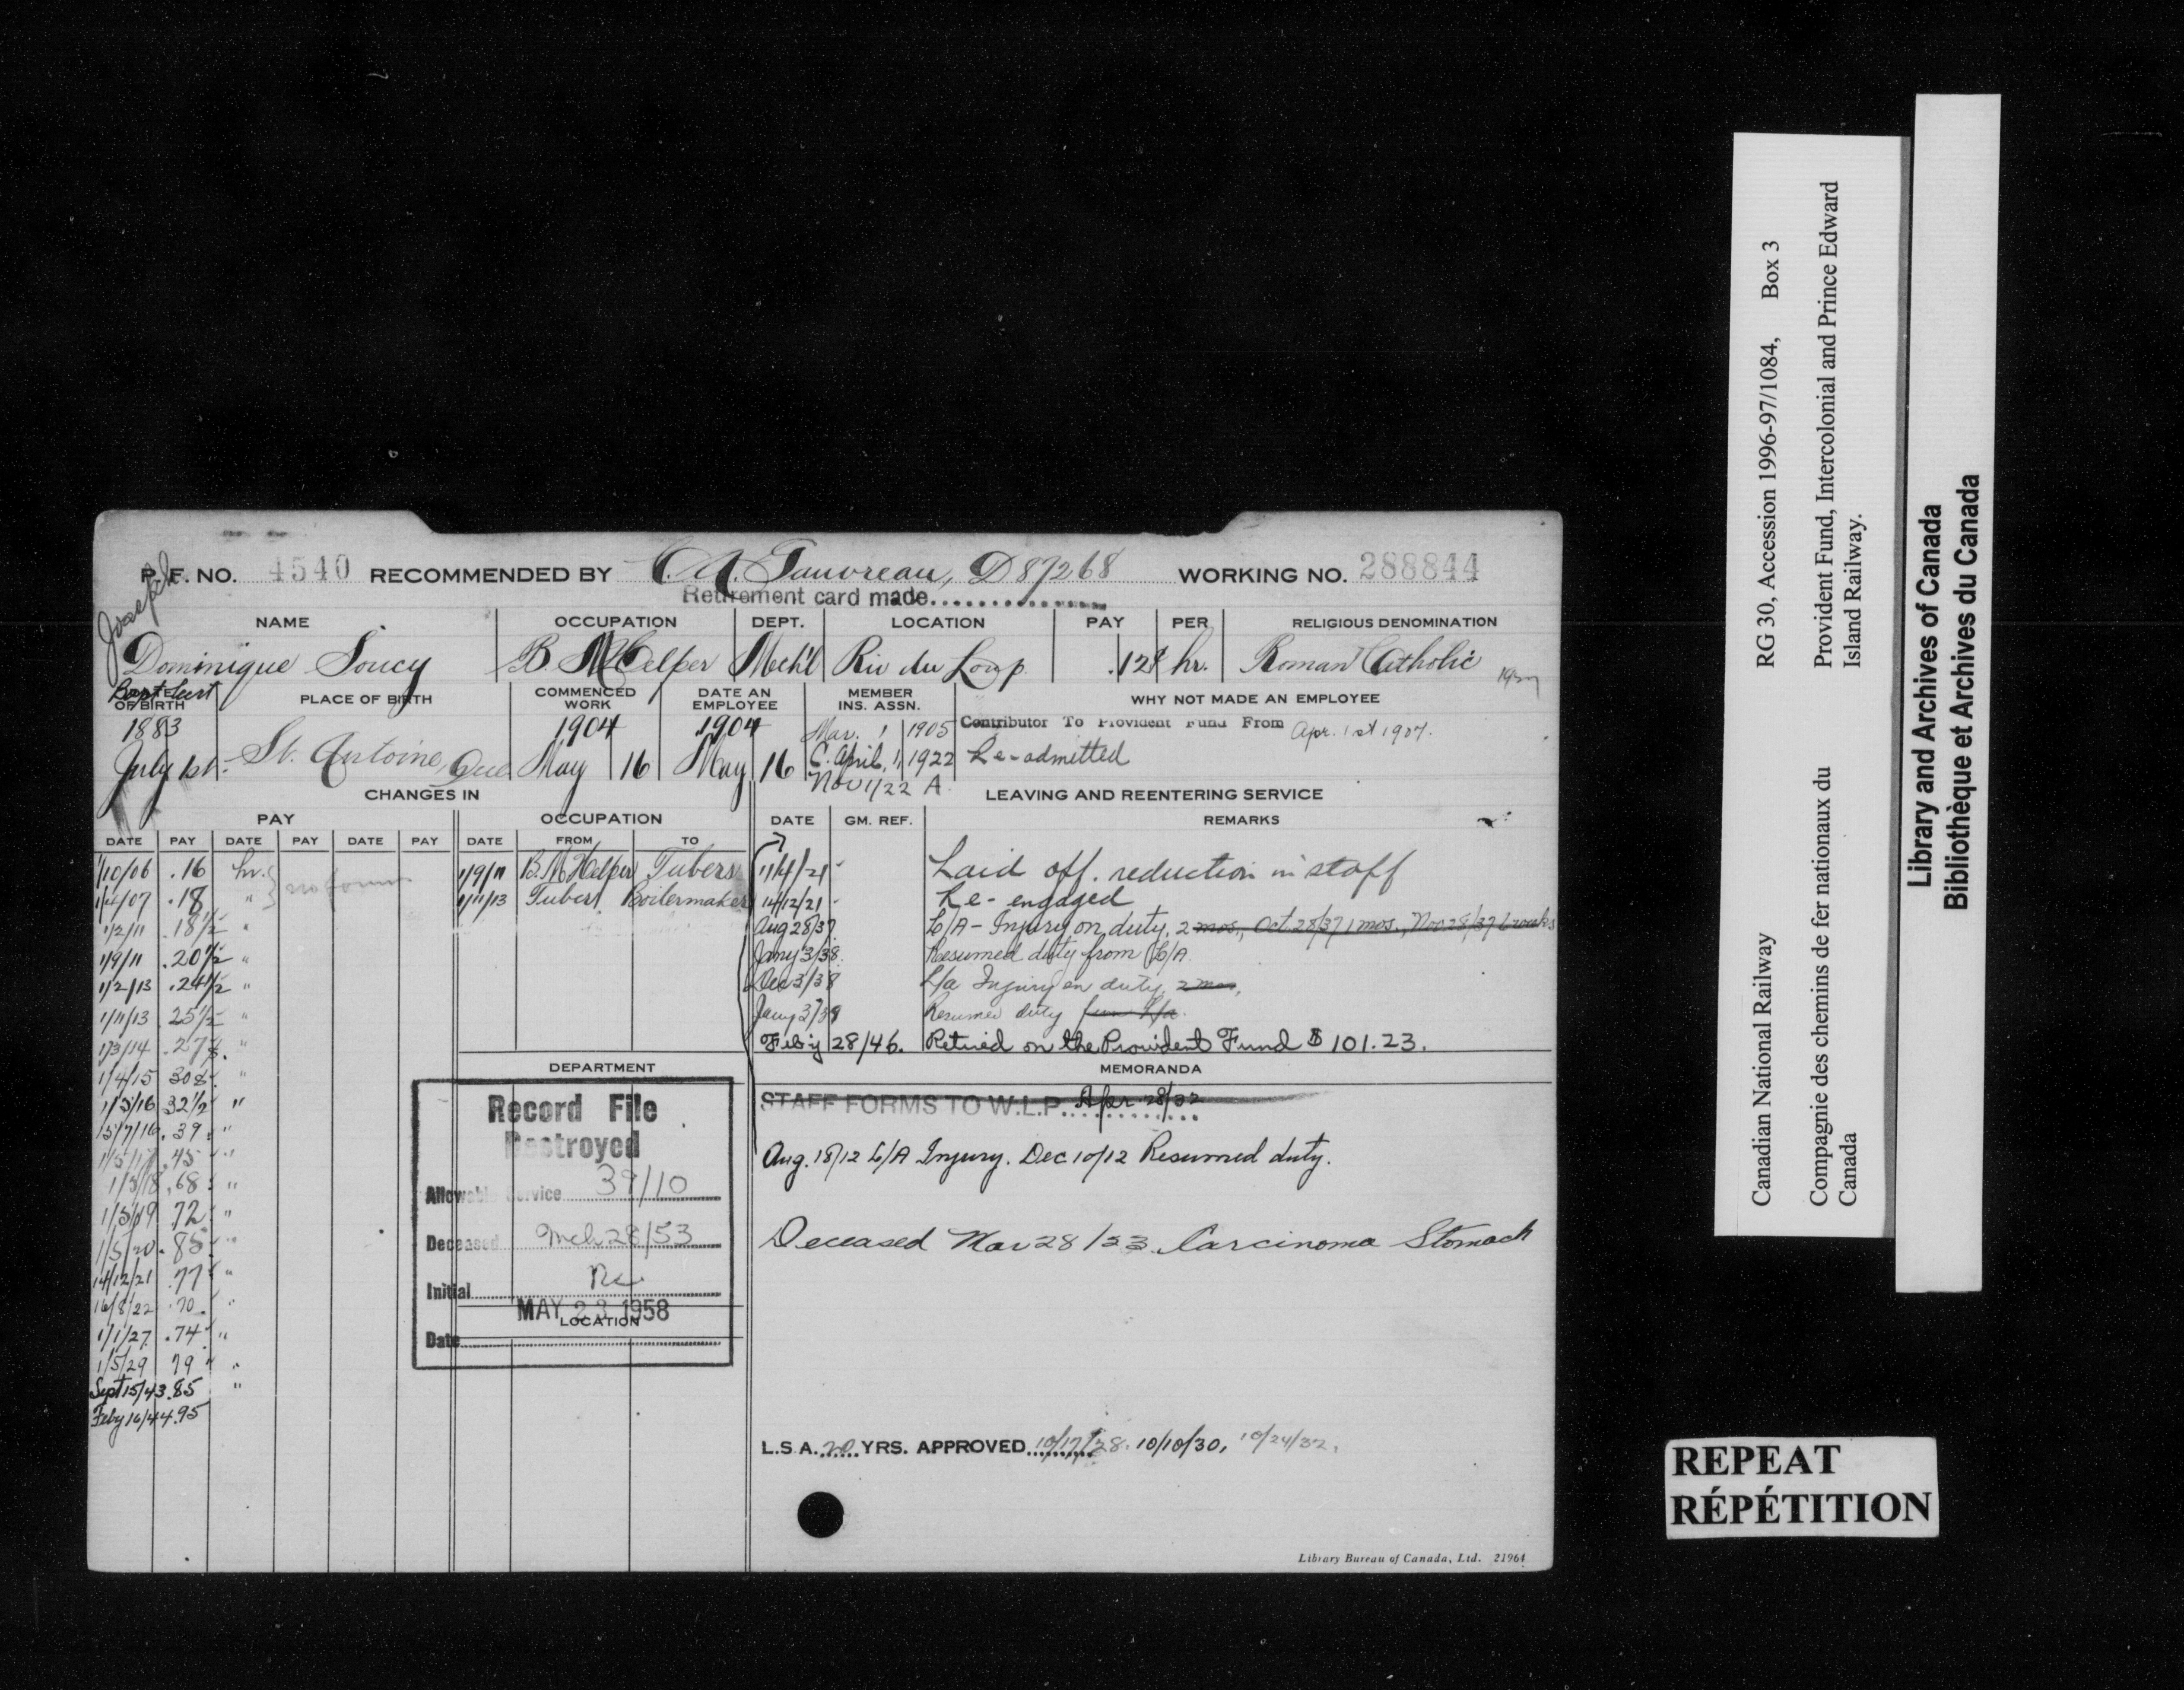 P. F. NO. 4540 RECOMMENDED BY C. A. Gauvreau, D87268 WORKING NO. 288844
Retirement card made
Joseph
NAME OCCUPATION DEPT. LOCATION PAY PER RELIGIOUS DENOMINATION
Dominique Soucy B. M Helper Mech'l Riv du Loup .12¢ hr. Roman Catholic
Bapt Cert
OF BIRTH PLACE OF BIRTH COMMENCED WORK DATE AN EMPLOYEE MEMBER INS. ASSN. WHY NOT MADE AN EMPLOYEE
1883 1904 1904 Mar. 1 1905 Contributor To Provident Fund From Apr. 1st 1907.
July 1st. St. Antoine, Que May 16 May 16 C. April, 1, 1922 Re-admitted
Nov 1/22 A
CHANGES IN LEAVING AND REENTERING SERVICE
PAY OCCUPATION DATE GM. REF. REMARKS
DATE PAY DATE PAY DATE PAY DATE FROM TO
1/10/06 .16 hr. no forms 1/9/11 B. M Helper Tubers 1/4/21 Laid off. reduction in staff
1/4/07 .18 " 1/11/13 Tubers Boilermaker 14/12/21 Re-engaged
1/2/11 .18½ " Aug 28/37 L/A - Injury on duty, 2 mos., Oct 28/37 1 mos., Nov 28/37 6 weeks
1/9/11 .20½ " Jany 3/38. Resumed duty from L/A
1/2/13 .24½ " Dec 3/38 L/a Injury on duty, 2 mos,
1/11/13 25½ " Jany 3/39 Resumed duty from L/a.
1/3/14 .27¢. " Feby 28/46. Retired on the Provident Fund $ 101.23.
1/4/15 30¢ "
1/5/16 32½ "
15/7/16 .39 "
1/5/17 .45 "
1/3/18 .68 "
1/5/19 72 "
1/5/20 .85 "
14/12/21 .77 "
16/8/22 .70 "
1/1/27 .74 "
1/5/29 79 "
Sept 15/43 .85 "
Feby 16/44 .95
DEPARTMENT
Record File
Destroyed
Allowable Service 39/10
Deceased Mch 28/53
Initial
MAY 23 1958
LOCATION
Date
MEMORANDA
STAFF FORMS TO W.L.P. Apr. 28/32
Aug. 18/12 L/A Injury. Dec 10/12 Resumed duty.
Deceased Mar 28/53 Carcinoma Stomach
L.S.A. 20 YRS. APPROVED 10/17/28. 10/10/30, 10/24/32.
Library Bureau of Canada, Ltd. 21964
Canadian National Railway RG 30, Accession 1996-97/1084, Box 3
Compagnie des chemins de fer nationaux du Provident Fund, Intercolonial and Prince Edward
Canada Island Railway.
Library and Archives of Canada
Bibliothèque et Archives du Canada
REPEAT
RÉPÉTITION